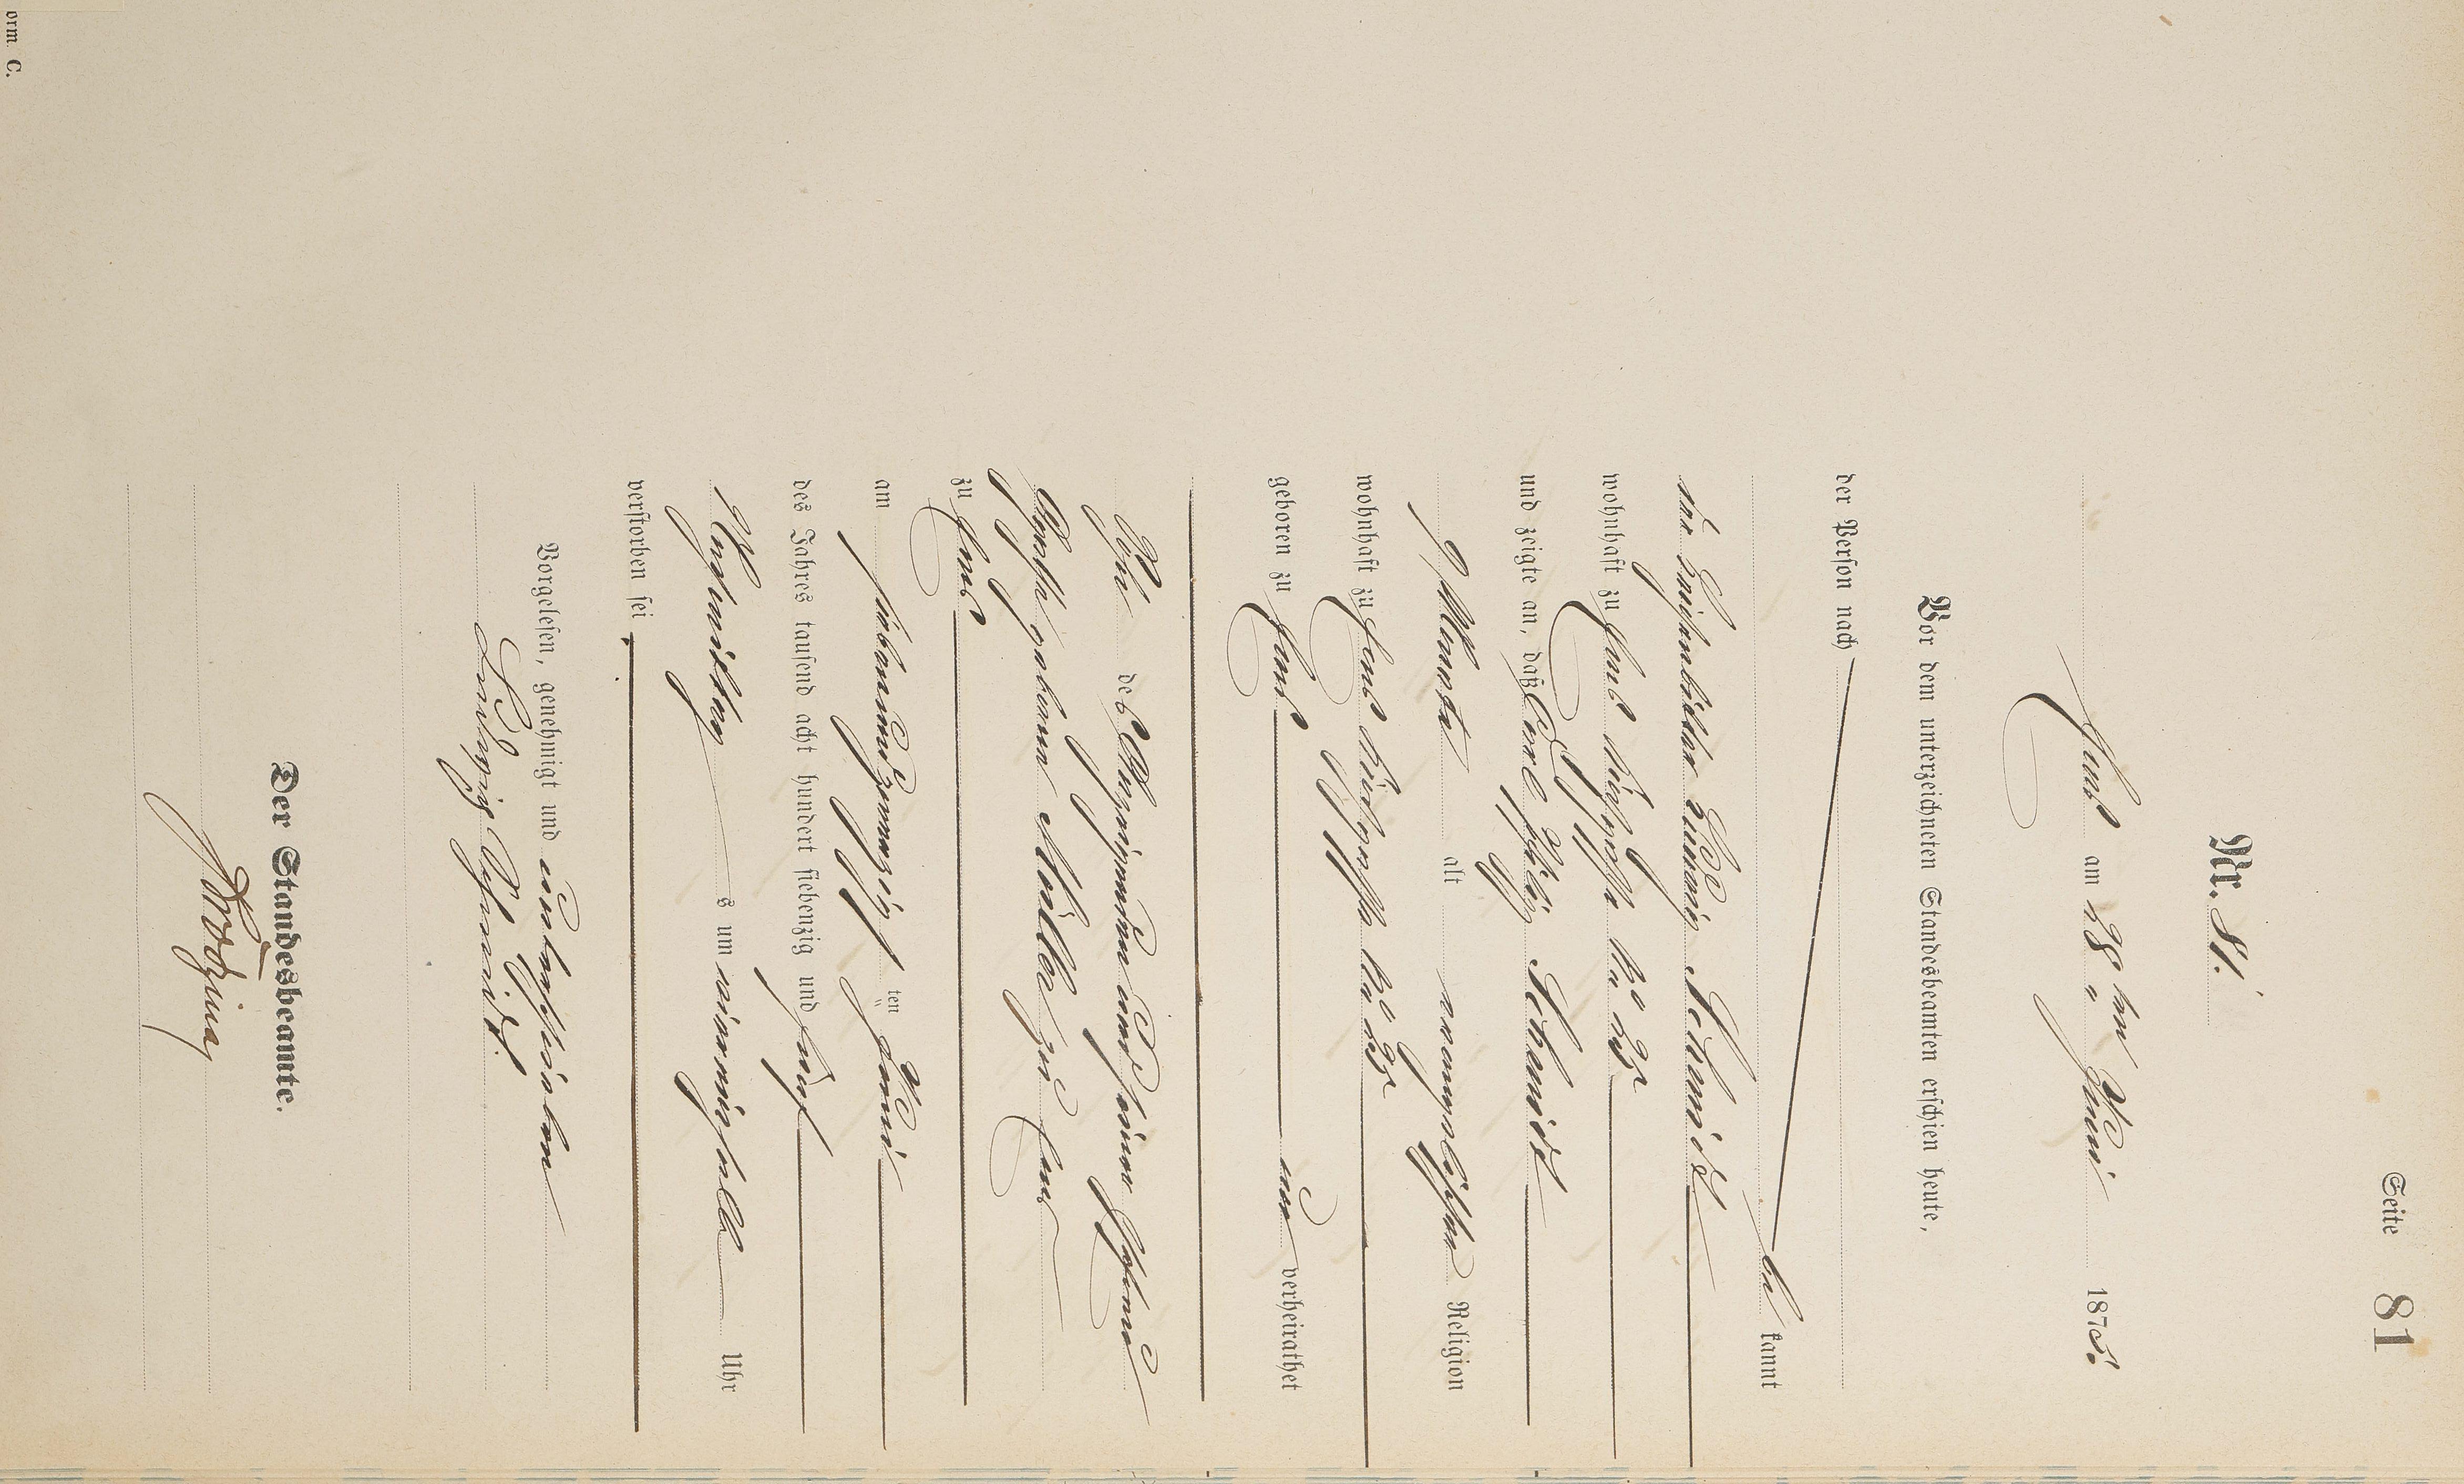 Seite 81
Nr. 81.
Ems am 28ten Juni 1875.
Vor dem unterzeichneten Standesbeamten erschien heute,
der Person nach
be kannt
der Ludwig Schmidt
wohnhaft zu Ems
und zeigte an, daß Carl Philipp Schmidt
9 Monate alt evangelischer Religion
wohnhaft zu Ems
geboren zu Ems un verheirathet
Sohn des Anzeigenden und seiner Ehefrau
geborene Müller zu Ems
zu Ems
am siebenundzwanzigs ten Juni
des Jahres tausend acht hundert siebenzig und fünf
Nachmittag s um Uhr
verstorben sei
Vorgelesen, genehmigt und unterschrieben
Ludwig Schmidt.
Der Standesbeamte.
orm. C.